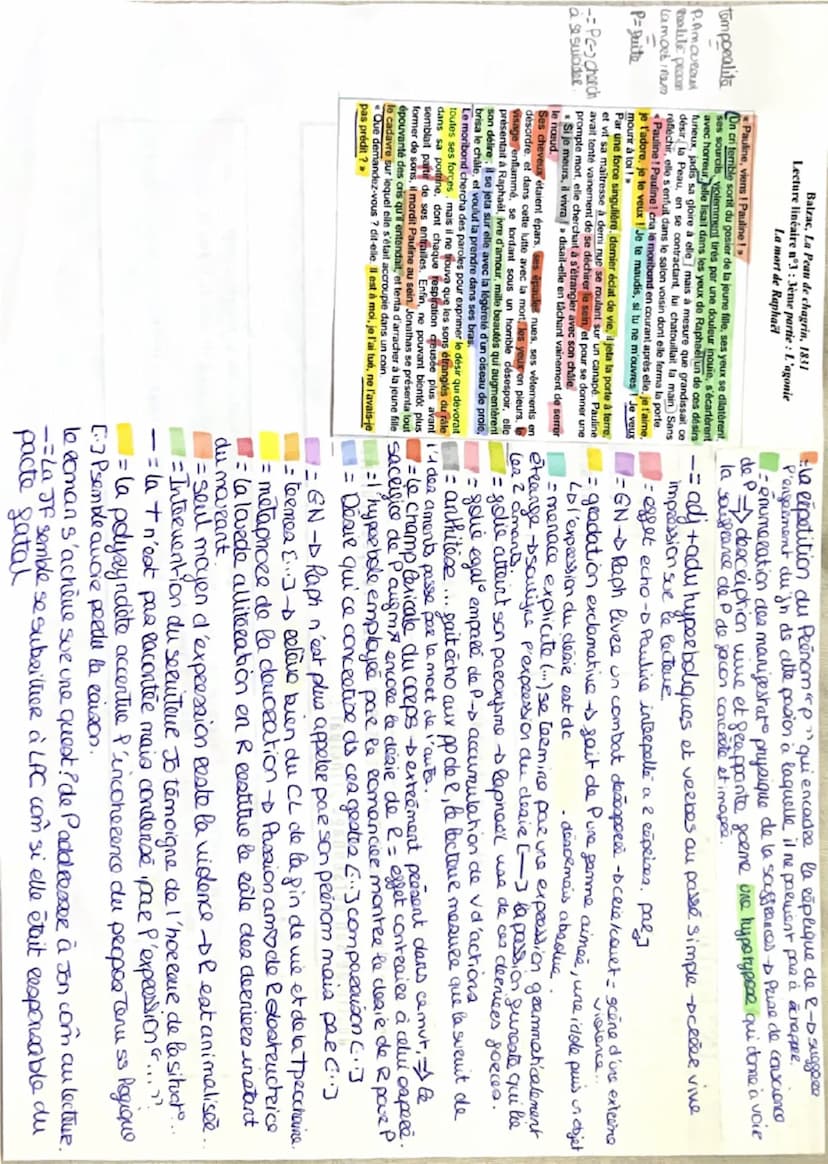 Balzac, La Peau de chagrin, 1831
Lecture linéaire n°3 : 3ème partie : L'agonie
La mort de Raphaël
« Pauline, viens ! Pauline ! »
Un cri terrible sortit du gosier de la jeune fille, ses yeux se dilatèrent,
ses sourcils, violemment tirés par une douleur inouïe, s'écartèrent
avec horreur, elle lisait dans les yeux de Raphaël un de ces désirs
furieux, jadis sa gloire à elle ; mais à mesure que grandissait ce
désir, la Peau, en se contractant, lui chatouillait la main. Sans
réfléchir, elle s'enfuit dans le salon voisin dont elle ferma la porte.
« Pauline ! Pauline ! cria le moribond en courant après elle, je t'aime,
je t'adore, je te veux ! Je te maudis, si tu ne m'ouvres ! Je veux
mourir à toi ! »
Par une force singulière, dernier éclat de vie, il jeta la porte à terre,
et vit sa maîtresse à demi nue se roulant sur un canapé. Pauline
avait tenté vainement de se déchirer le sein, et pour se donner une
prompte mort, elle cherchait à s'étrangler avec son châle.
« Si je meurs, il vivra ! » disait-elle en tâchant vainement de serrer
le nœud.
Ses cheveux étaient épars, ses épaules nues, ses vêtements en
désordre, et dans cette lutte avec la mort, les yeux en pleurs, le
visage enflammé, se tordant sous un horrible désespoir, elle
présentait à Raphaël, ivre d'amour, mille beautés qui augmentèrent
son délire ; il se jeta sur elle avec la légèreté d'un oiseau de proie,
brisa le châle, et voulut la prendre dans ses bras.
Le moribond chercha des paroles pour exprimer le désir qui dévorait
toutes ses forces ; mais il ne trouva que les sons étranglés du râle
dans sa poitrine, dont chaque respiration creusée plus avant,
semblait partir de ses entrailles. Enfin, ne pouvant bientôt plus
former de sons, il mordit Pauline au sein. Jonathas se présenta tout
épouvanté des cris qu'il entendait, et tenta d'arracher à la jeune fille
le cadavre sur lequel elle s'était accroupie dans un coin.
« Que demandez-vous ? dit-elle. Il est à moi, je l'ai tué, ne l'avais-je
pas prédit ? »
temporalité
P. Amoureux
réalité
la mort
P = fuite
= P(-) cherch
à se suicider.
= la répétition du Prénom « P » qui encadre la réplique de R → suggère
l'enfermement du jh ds cette passion à laquelle il ne parvient pas à échapper.
= énumération des manifestat° physique de la souffrances → Prise de conscience
de P ⇒ description vive et frappante forme une hypotypose qui donne à voir
la souffrance de P de façon concrète et imagée.
— = adj + adv hyperboliques et verbes au passé simple → créer vive
impression sur le lecteur.
= effet echo → Pauline interpelle à 2 reprises. par J
= GN → Raph livrer un combat désespéré → crie/court = scène d'une extrême
violence..
= gradation exclamative → fait de P une femme aimée, une idole puis un objet
L'expression du désir est de désormais absolue.
= menace explicite (...) se termine par une expression grammaticalement
étrange → souligne l'expression du désir [—] la passion funeste qui lie
les 2 amants.
= folie atteint son paroxysme → Raphaël use de ces dernières forces.
= folie egal° emparée de P → accumulation de v d'actions
= antithèse ... fait écho aux pp de R, le lecteur mesure que la survit de
1 des amants passe par la mort de l'autre.
= le champ lexicale du corps → extrêment présent dans ce mvt, ⇒ le
sacrifice de P augm* encore le désir de R = effet contraire à celui espéré.
= l'hyperbole employée par le romancier montre le désir de R pour P
= Désir qui ce concrétise ds ces gestes [...] comparaison [...]
= GN → Raph n'est plus appeler par son prénom mais par [...]
= termes [...] → relève bien du CL de la fin de vie et de la † prochaine.
= métaphore de la dévoration → Passion amr de R destructrice
= la lourde allitération en R restitue le râle des derniers instant
du mourant.
= seul moyen d'expression reste la violence → R est animalisée..
= Intervention du serviteur Jo témoigne de l'horreur de la situat°..
— = la † n'est pas racontée mais condensé, par l'expression « ... »
= la polysyndète accentue l'incohérence du propos tenu ss logique
[..] P semble avoir perdu la raison.
le roman s'achève sur une quest° de P addresser à Jon com au lecteur.
— = La JF semble se substituer à LPC com si elle était responsable du
pacte fatal